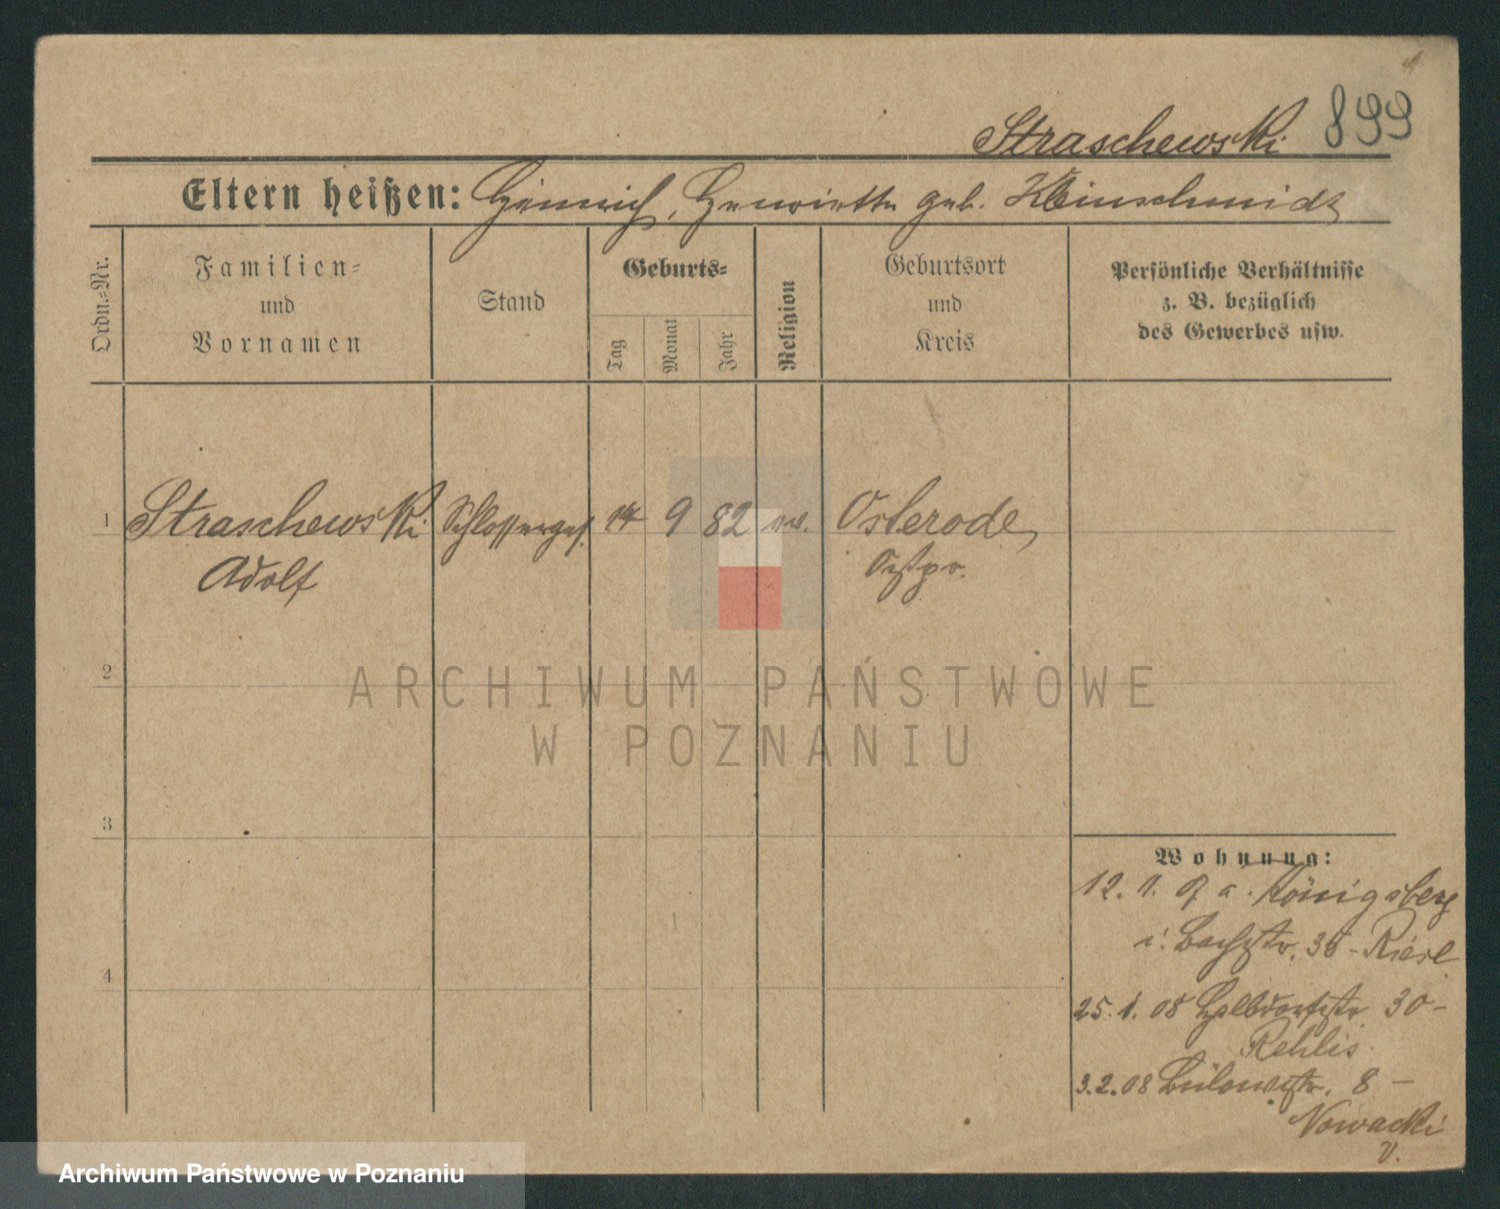 Straschewski 899
Eltern heißen: Heinrich, Henriette geb. Kleinschmidt
Ordn.-Nr.
Familien-
und
Vornamen
Stand
Geburts-
Tag
Monat
Jahr
Religion
Geburtsort
und
Kreis
Persönliche Verhältnisse
z. B. bezüglich
des Gewerbes usw.
1 Straschewski Schlosserges. 14 9 82 ev. Osterode,
Adolf Ostpr.
2
ARCHIWUM PAŃSTWOWE
W POZNANIU
3
Wohnung:
12. 1. 07 a. Königsberg
i. Bachstr. 36 - Riesl
4
25. 1. 08 Halbdorfstr 30 -
Rehlis
3. 2. 08 Bülowstr. 8 -
Nowacki
v.
Archiwum Państwowe w Poznaniu